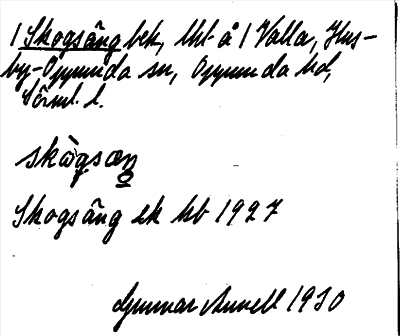 1 Skogsäng bek, lht å 1 Valla, Hus-
by-Oppunda sn, Oppunda hd,
Sörml. l.
skògsæŋ
Skogsäng ek kb 1927
Gunnar Annell 1930